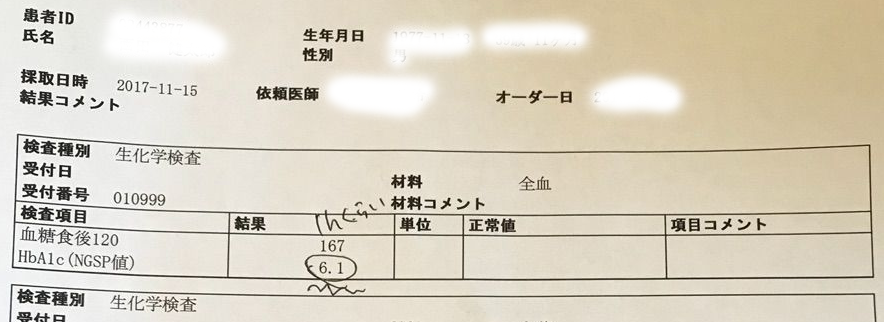 患者ID
氏名 生年月日
性別
採取日時 2017-11-15 依頼医師 オーダー日
結果コメント
検査種別 生化学検査
受付日 材料 全血
受付番号 010999 材料コメント
検査項目 結果 1hくらい 単位 正常値 項目コメント
血糖食後120 167
HbA1c(NGSP値) 6.1
検査種別 生化学検査
受付日